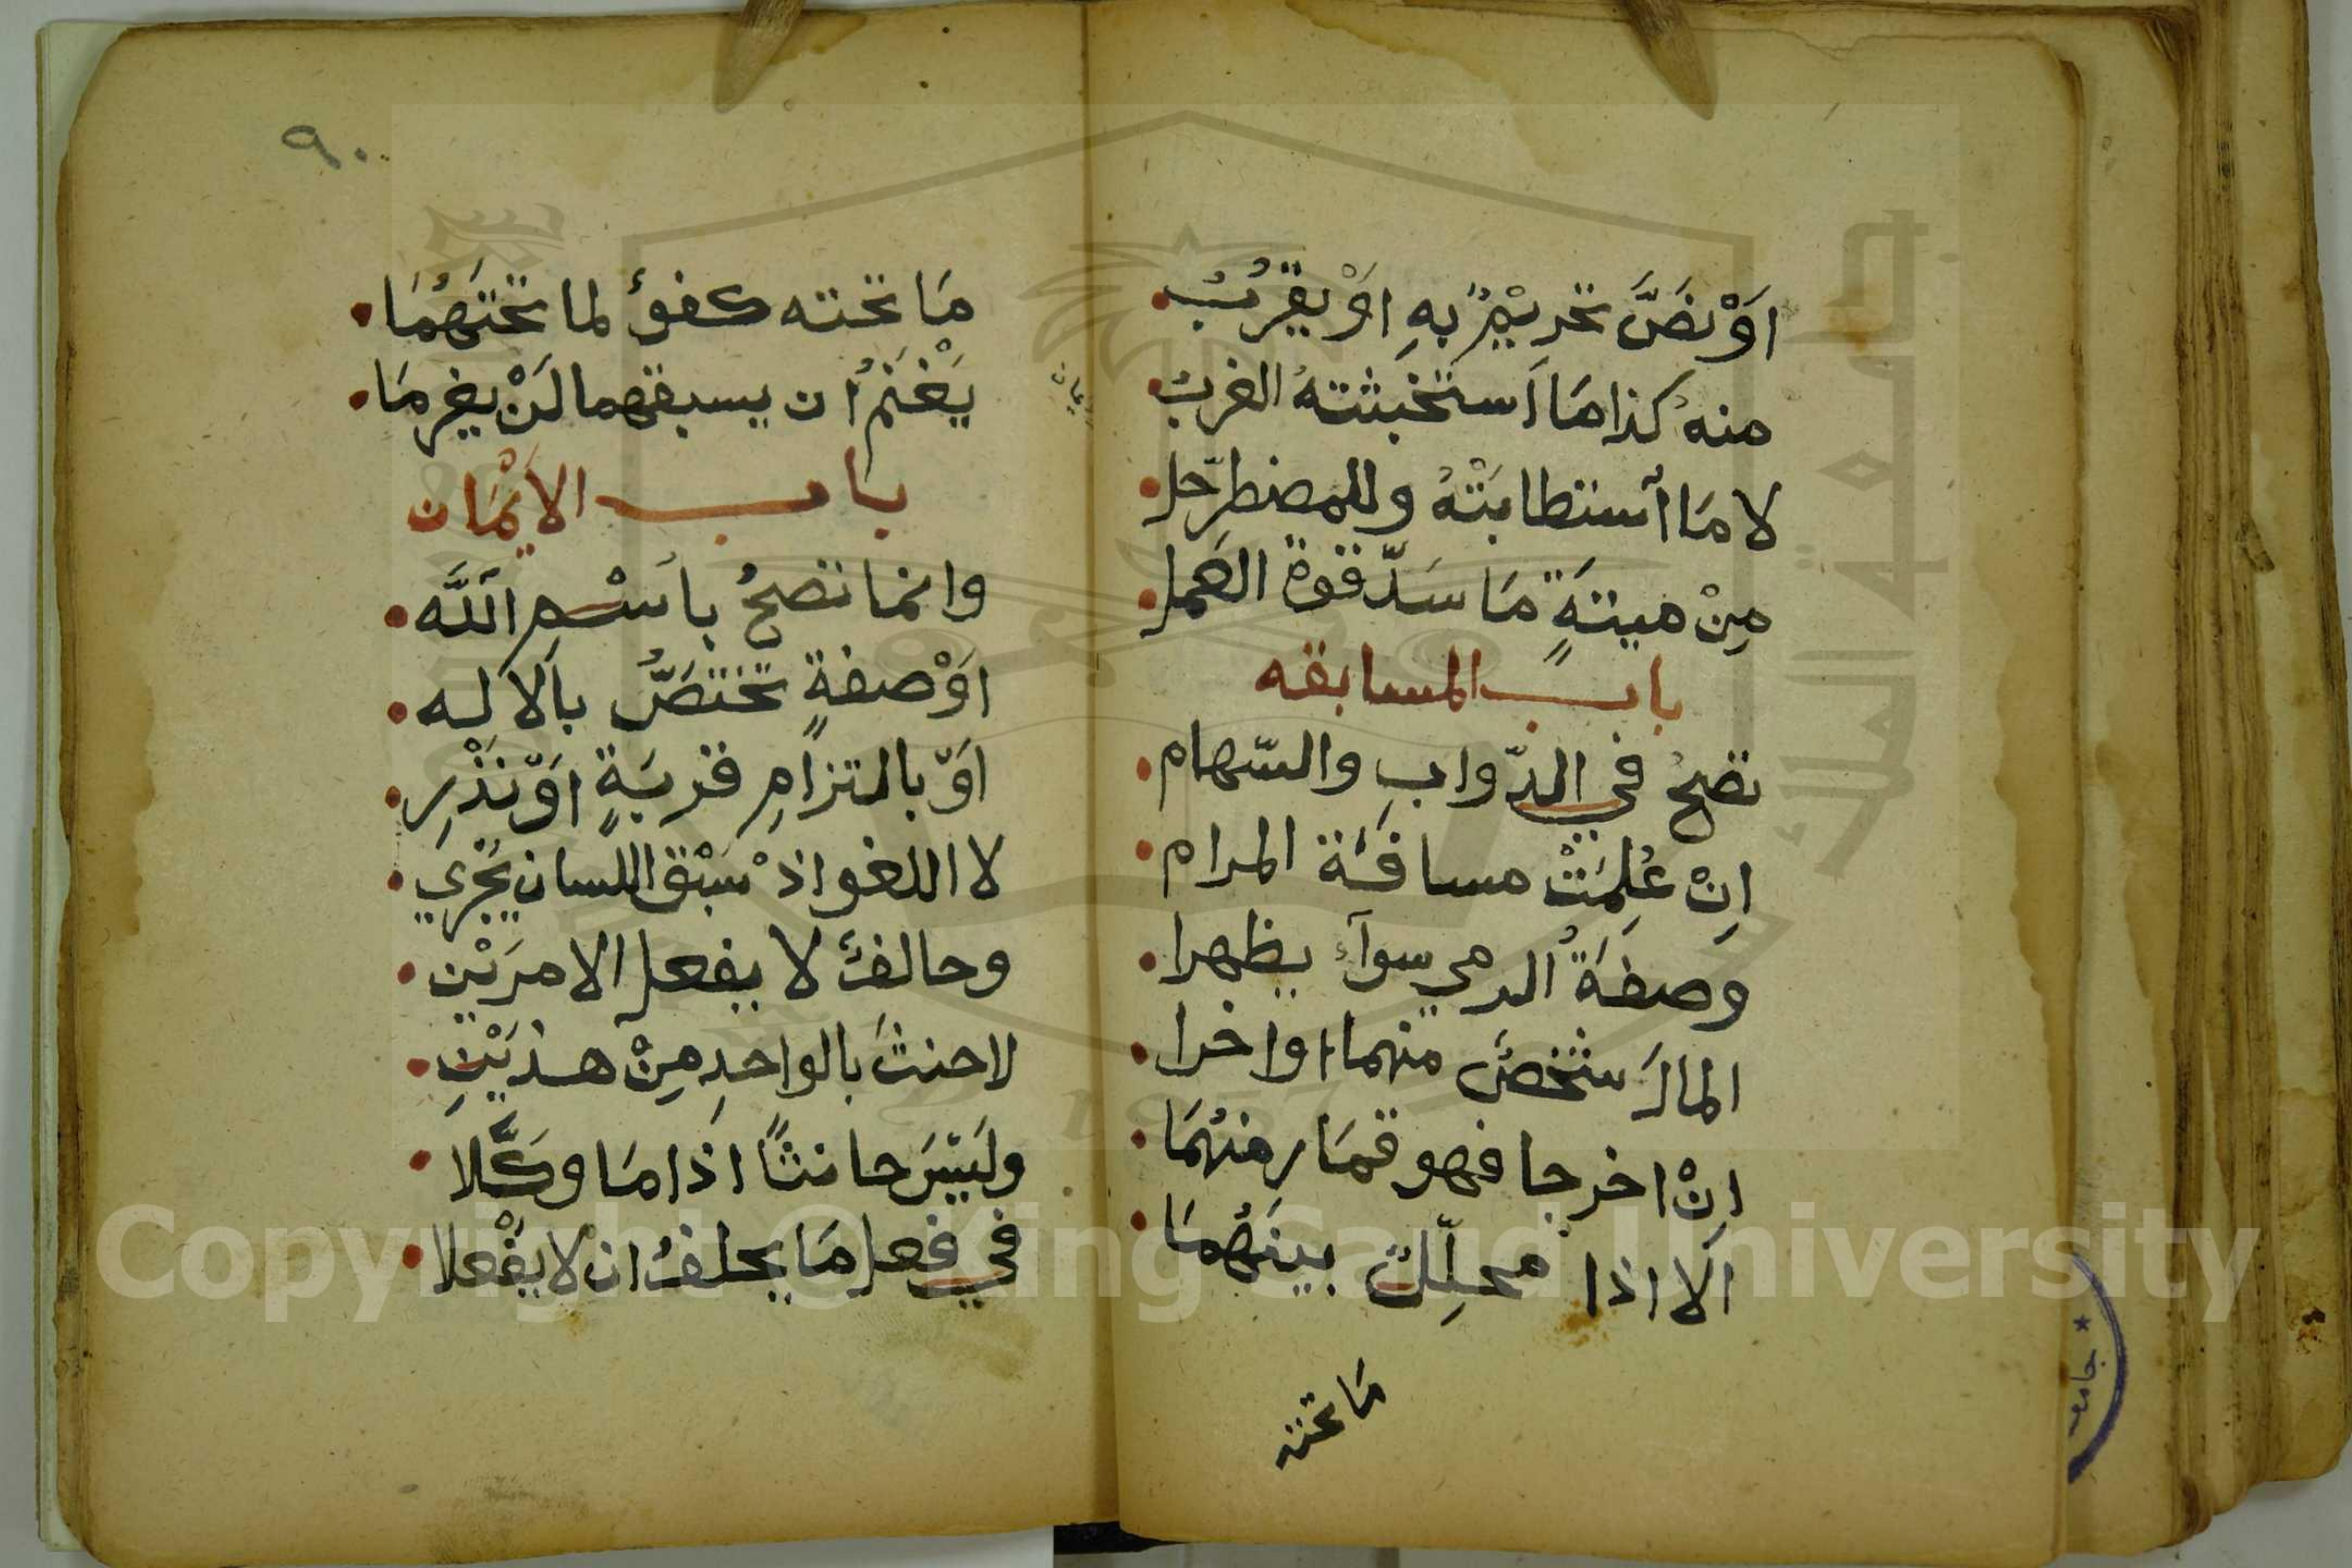 اَوْ نَصَّ تحَريْمٌ بهِ اوْ يقرُبُ
منهُ كذا مَا اَستخبثتهُ العربُ
لا مَا أستطابَتْهُ وللمضطرّ حل
مِنْ ميتةٍ مَا سَدّ قوة العَمل
باب المسابقه
تصحُ في الدّوابِ والسّهام
اِنْ عُلِمَتْ مسافَة المرام
وصفَةُ الرمي سوآء يظهرا
المالَ شخصٌ منهما اواخرا
اِنْ اخرجا فهو قمَار منهُمَا
اَلا اذا محلِّلٌ بينَهُمَا
مَا تحته
٩٠
مَا تحته كفؤٌ لما تحتَهُمَا
يَغْنَمُ أن يسبقهما لَنْ يغرمَا
باب الاَيْمَان
وانما تصحُ باَسْم اَللَّه
اوْ صفةٍ تختَصُّ باَلاله
اَوْ بالتزامِ قربَةٍ اوْ نَذْرِ
لا اللغو اذْ سَبْق اللسان يَجْري
وحالفٌ لا يفعل الامرَيْن
لا حنثَ بالواحدِ مِنْ هذيْنِ
ولَيْسَ حانثاً اذا مَا وكَّلا
في فعل مَا يحلفُ ان لا يفْعلا